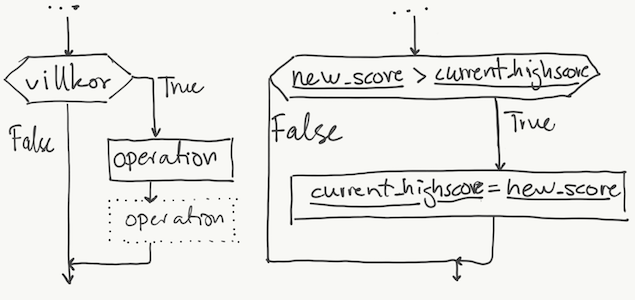 ...
villkor
True
False
operation
operation
...
new_score > current_highscore
False
True
current_highscore = new_score